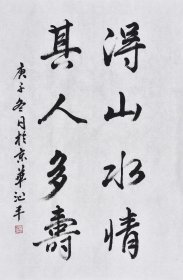 得山水情
其人多壽
庚子冬月於京華沁平